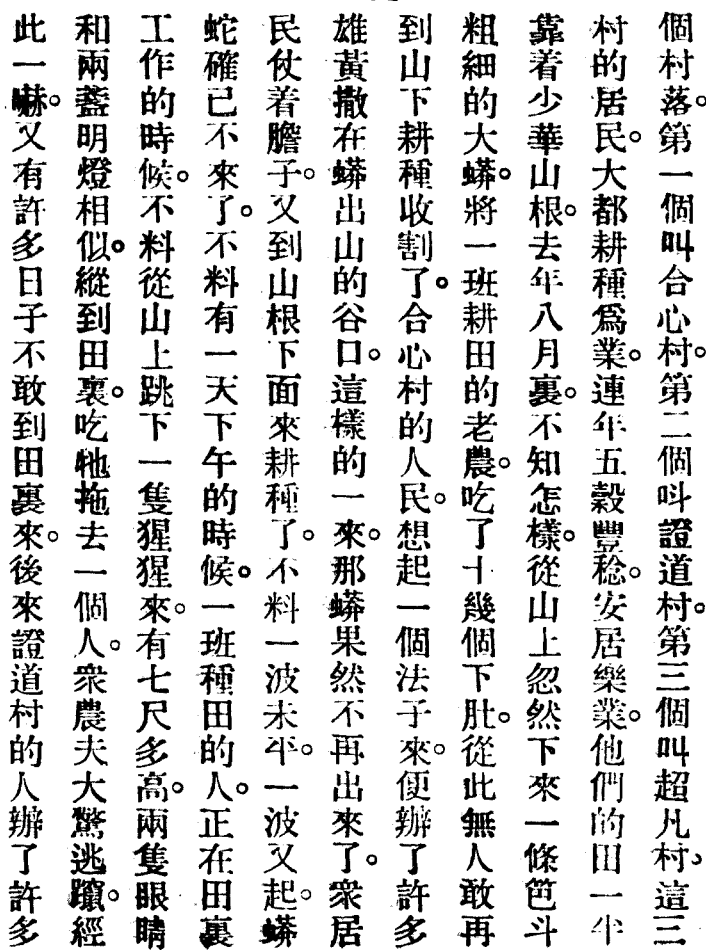 個村落。第一個叫合心村。第二個呌證道村。第三個叫超凡村。這三
村的居民。大都耕種爲業。連年五穀豐稔。安居樂業。他們的田一半
靠着少華山根。去年八月裏。不知怎樣。從山上忽然下來一條笆斗
粗細的大蟒。將一班耕田的老農。吃了十幾個下肚。從此無人敢再
到山下耕種收割了。合心村的人民。想起一個法子來。便辦了許多
雄黃撒在蟒出山的谷口。這樣的一來。那蟒果然不再出來了。衆居
民仗着膽子。又到山根下面來耕種了。不料一波未平。一波又起。蟒
蛇確已不來了。不料有一天下午的時候。一班種田的人。正在田裏
工作的時候。不料從山上跳下一隻猩猩來。有七尺多高。兩隻眼睛
和兩盞明燈相似。縱到田裏。吃牠拖去一個人。衆農夫大驚逃竄。經
此一嚇。又有許多日子不敢到田裏來。後來證道村的人辦了許多